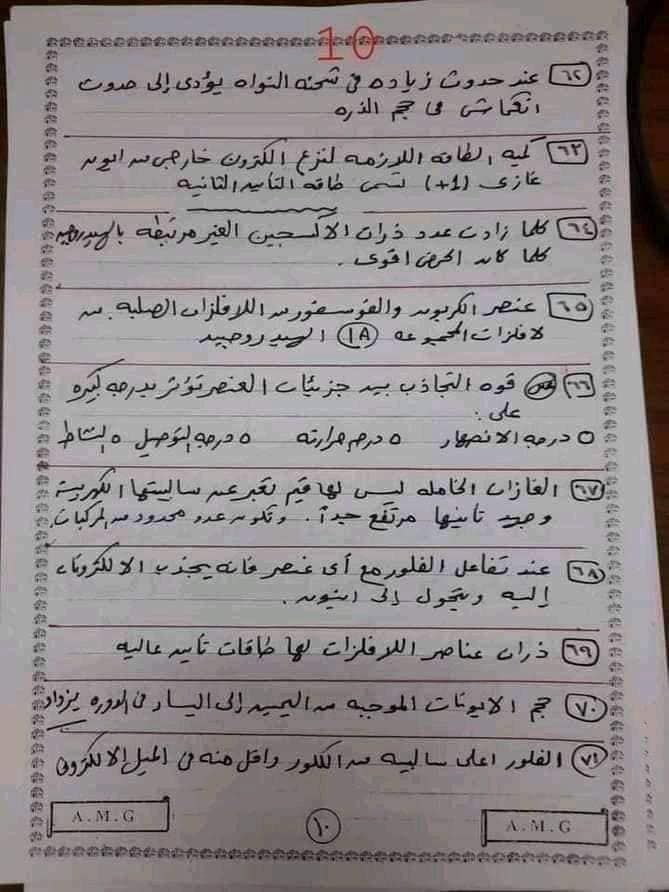 10
٦٢ عند حدوث زياده فى شحنه النواه يؤدى إلى حدوث
انكماش فى حجم الذره
٦٣ كميه الطاقه اللازمه لنزع الكترون خارجى من ايون
غازى (+1) تسمى طاقه التأين الثانيه
٦٤ كلما زادت عدد ذرات الاكسجين الغير مرتبطه بالهيدروجين
كلما كان الحمض اقوى .
٦٥ عنصر الكربون والفوسفور من اللافلزات الصلبه . من
لافلزات المجموعه 1A الهيدروجين
٦٦ قوه التجاذب بين جزيئات العنصر تؤثر بدرجه كبيره
على :
درجه الانصهار درجه حرارته درجه التوصيل النشاط
٦٧ الغازات الخامله ليس لها قيم تعبر عن سالبيتها الكهربية
وجهد تأينها مرتفع جداً . وتكون عدد محدود من المركبات
٦٨ عند تفاعل الفلور مع أى عنصر فانه يجذب الالكترونات
إليه ويتحول إلى انيون .
٦٩ ذرات عناصر اللافلزات لها طاقات تأين عاليه
٧٠ حجم الايونات الموجبه من اليمين إلى اليسار فى الدوره يزداد
٧١ الفلور اعلى سالبيه من الكلور واقل منه فى الميل الالكترونى
A.M.G ١٠ A.M.G